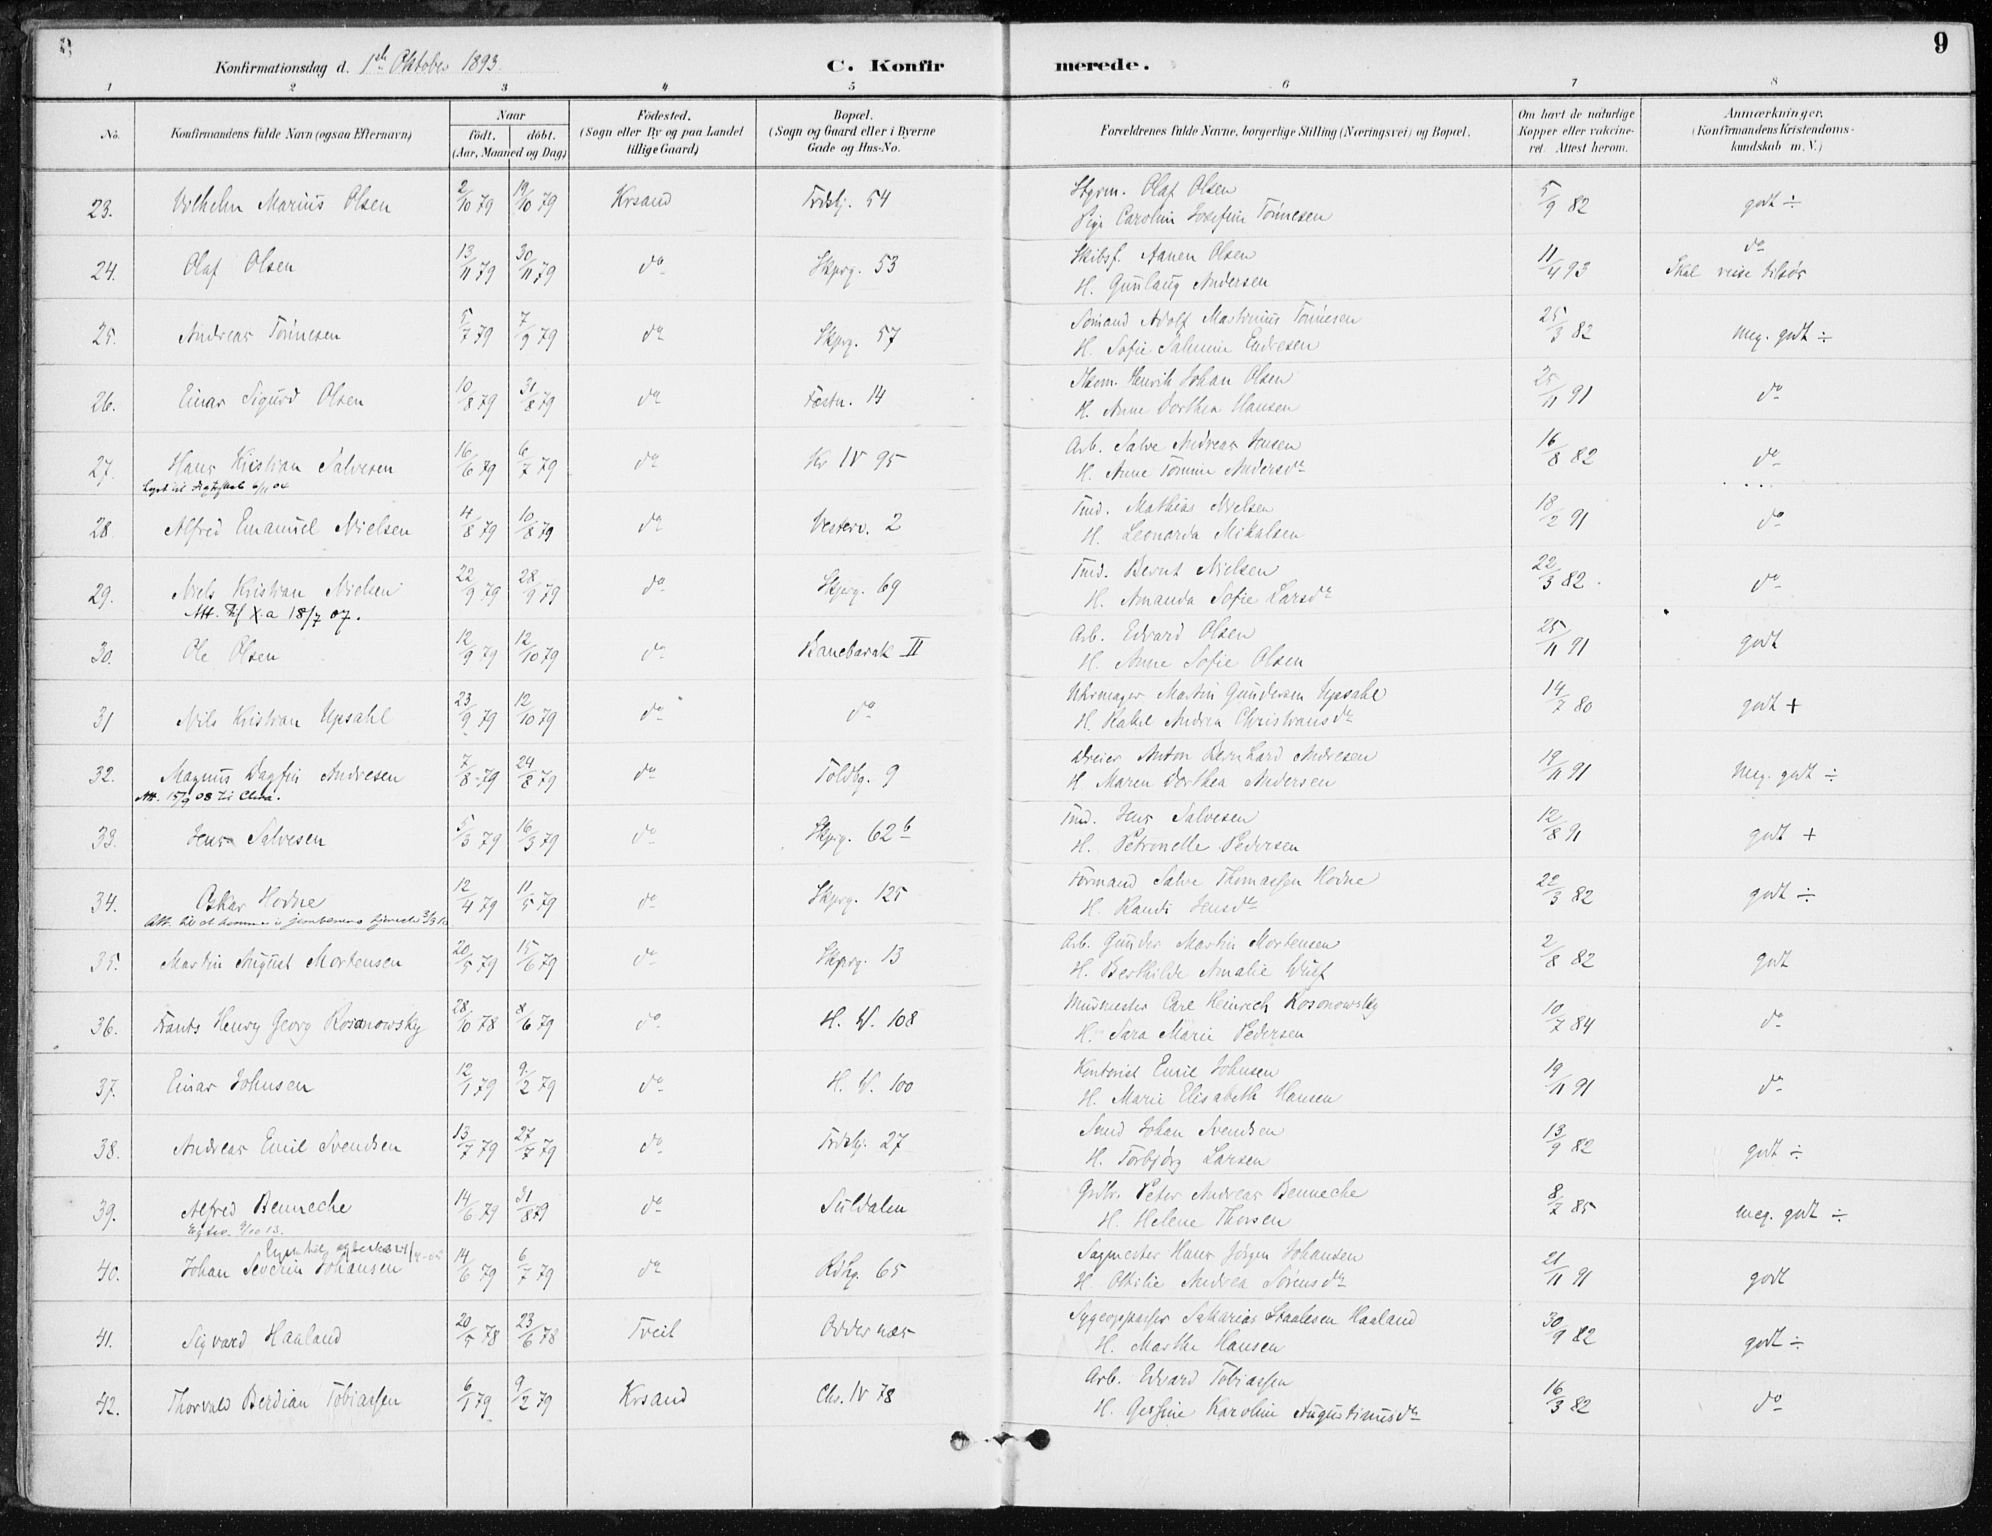 9
Konfirmationsdag d. 1ste Oktober 1893. C. Konfirmerede.
1 2 3 4 5 6 7 8
No. Konfirmandens fulde Navn (ogsaa Efternavn) Naar födt. döbt. (Aar, Maaned og Dag) Födested. (Sogn eller By og paa Landet tillige Gaard) Bopæl. (Sogn og Gaard eller i Byerne Gade og Hus-No. Forældrenes fulde Navne, borgerlige Stilling (Næringsvei) og Bopæl. Om havt de naturlige Kopper eller vakcineret. Attest herom. Anmærkninger. (Konfirmandens Kristendomskundskab m. V.)
23. Vilhelm Marius Olsen 2/10 79 19/10 79 Krsand 54 Styrm. Olaf Olsen 5/9 82 godt ÷
Pige Caroline Josefine Tönnesen
24. Olaf Olsen 13/11 79 30/11 79 do Skprg. 53 Skibsf. Aanen Olsen 11/4 93 do
H. Gunlaug Andersen Skal reise tilsjøs
25. Andreas Tönnesen 5/7 79 7/9 79 do Skprg. 57 Sömand Adolf Martinius Tönnesen 25/3 82 meg. godt ÷
H. Sofie Salmine Endresen
26. Einar Sigurd Olsen 10/8 79 31/8 79 do Festn. 14 Henrik Johan Olsen 25/11 91 do
H. Anne Dorthea Hansen
27. Hans Kristian Salvesen 16/6 79 6/7 79 do Kr IV 95 Arb. Salve Andreas Jensen 16/8 82 do
H. Anne Tomine Andersdtr
28. Alfred Emanuel Nielsen 4/8 79 10/8 79 do Vesterv. 2 Tmd. Mathias Nielsen 18/2 91 do
H. Leonarda Mikalsen
29. Niels Kristian Nielsen 22/9 79 28/9 79 do Skprg. 69 Tmd. Bernt Nielsen 22/3 82. do
Att. 18/7 07. H. Amanda Sofie Larsdtr
30. Ole Olsen 12/9 79 12/10 79 do Banebarak II Arb. Edvard Olsen 25/11 91 godt
H. Anne Sofie Olsen
31 Nils Kristian Upsahl 23/9 79 12/10 79 do do Uhrmager Martin Gundersen Upsahl 14/7 80 godt +
H. Andrea Christiansdtr
32. Magnus Dagfin Andresen 7/8 79 24/8 79 do Toldbg. 9 Dreier Anton Bernhard Andresen 19/11 91 Meg. godt ÷
Att. 15/9 08 til Chra. H Maren Dorthea Andersen
33. Jens Salvesen 5/3 79 16/3 79 do Skprg. 62 b Tmd. Jens Salvesen 12/8 91 godt +
H. Petronelle Pedersen
34. Oskar Hodne 12/4 79 11/5 79 do Skprg. 125 Formand Salve Thomassen Hodne 22/3 82 godt ÷
Att. til at komme i jernbanens tjeneste H. Randi Jensdtr
35. Martin August Mortensen 20/5 79 15/6 79 do Skprg. 13 Arb. Gunder Martin Mortensen 2/8 82 godt
H. Berthilde Amalie Wulf
36. Frants Henry Georg Rosanowsky 28/10 78 8/6 79 do H. V. 108 Murmester Carl Heinrich Rosonowsky 10/7 84 do
H. Sara Marie Pedersen
37. Einar Johnsen 12/1 79 9/2 79 do H. V. 100 Kontorist Emil Johnsen 19/11 91 do
H. Marie Elisabeth Hansen
38. Andreas Emil Svendsen 13/7 79 27/7 79 do 27 Smed Johan Svendsen 13/9 82 godt ÷
H. Torbjörg Larsen
39. Alfred Benneche 14/6 79 31/8 79 do Suldalen Peter Andreas Benneche 8/7 85 meg. godt ÷
H. Helene Thorsen
40. Johan Severin Johansen 14/6 79 6/7 79 do Rdhg. 65 Sagmester Hans Jörgen Johansen 21/11 91 godt
H. Ottilie Andrea Sörensdtr
41. Sigvard Haaland 20/5 78 23/6 78 Tveit Oddernæs Sygeoppasser Sakarias Staalesen Haaland 30/9 82 godt ÷
H. Marthe Hansen
42. Thorvald Berdian Tobiassen 6/1 79 9/2 79 Krsand Chs. IV 78 Arb. Edvard Tobiassen 16/3 82 do
H. Gessine Karoline Augustinusdtr